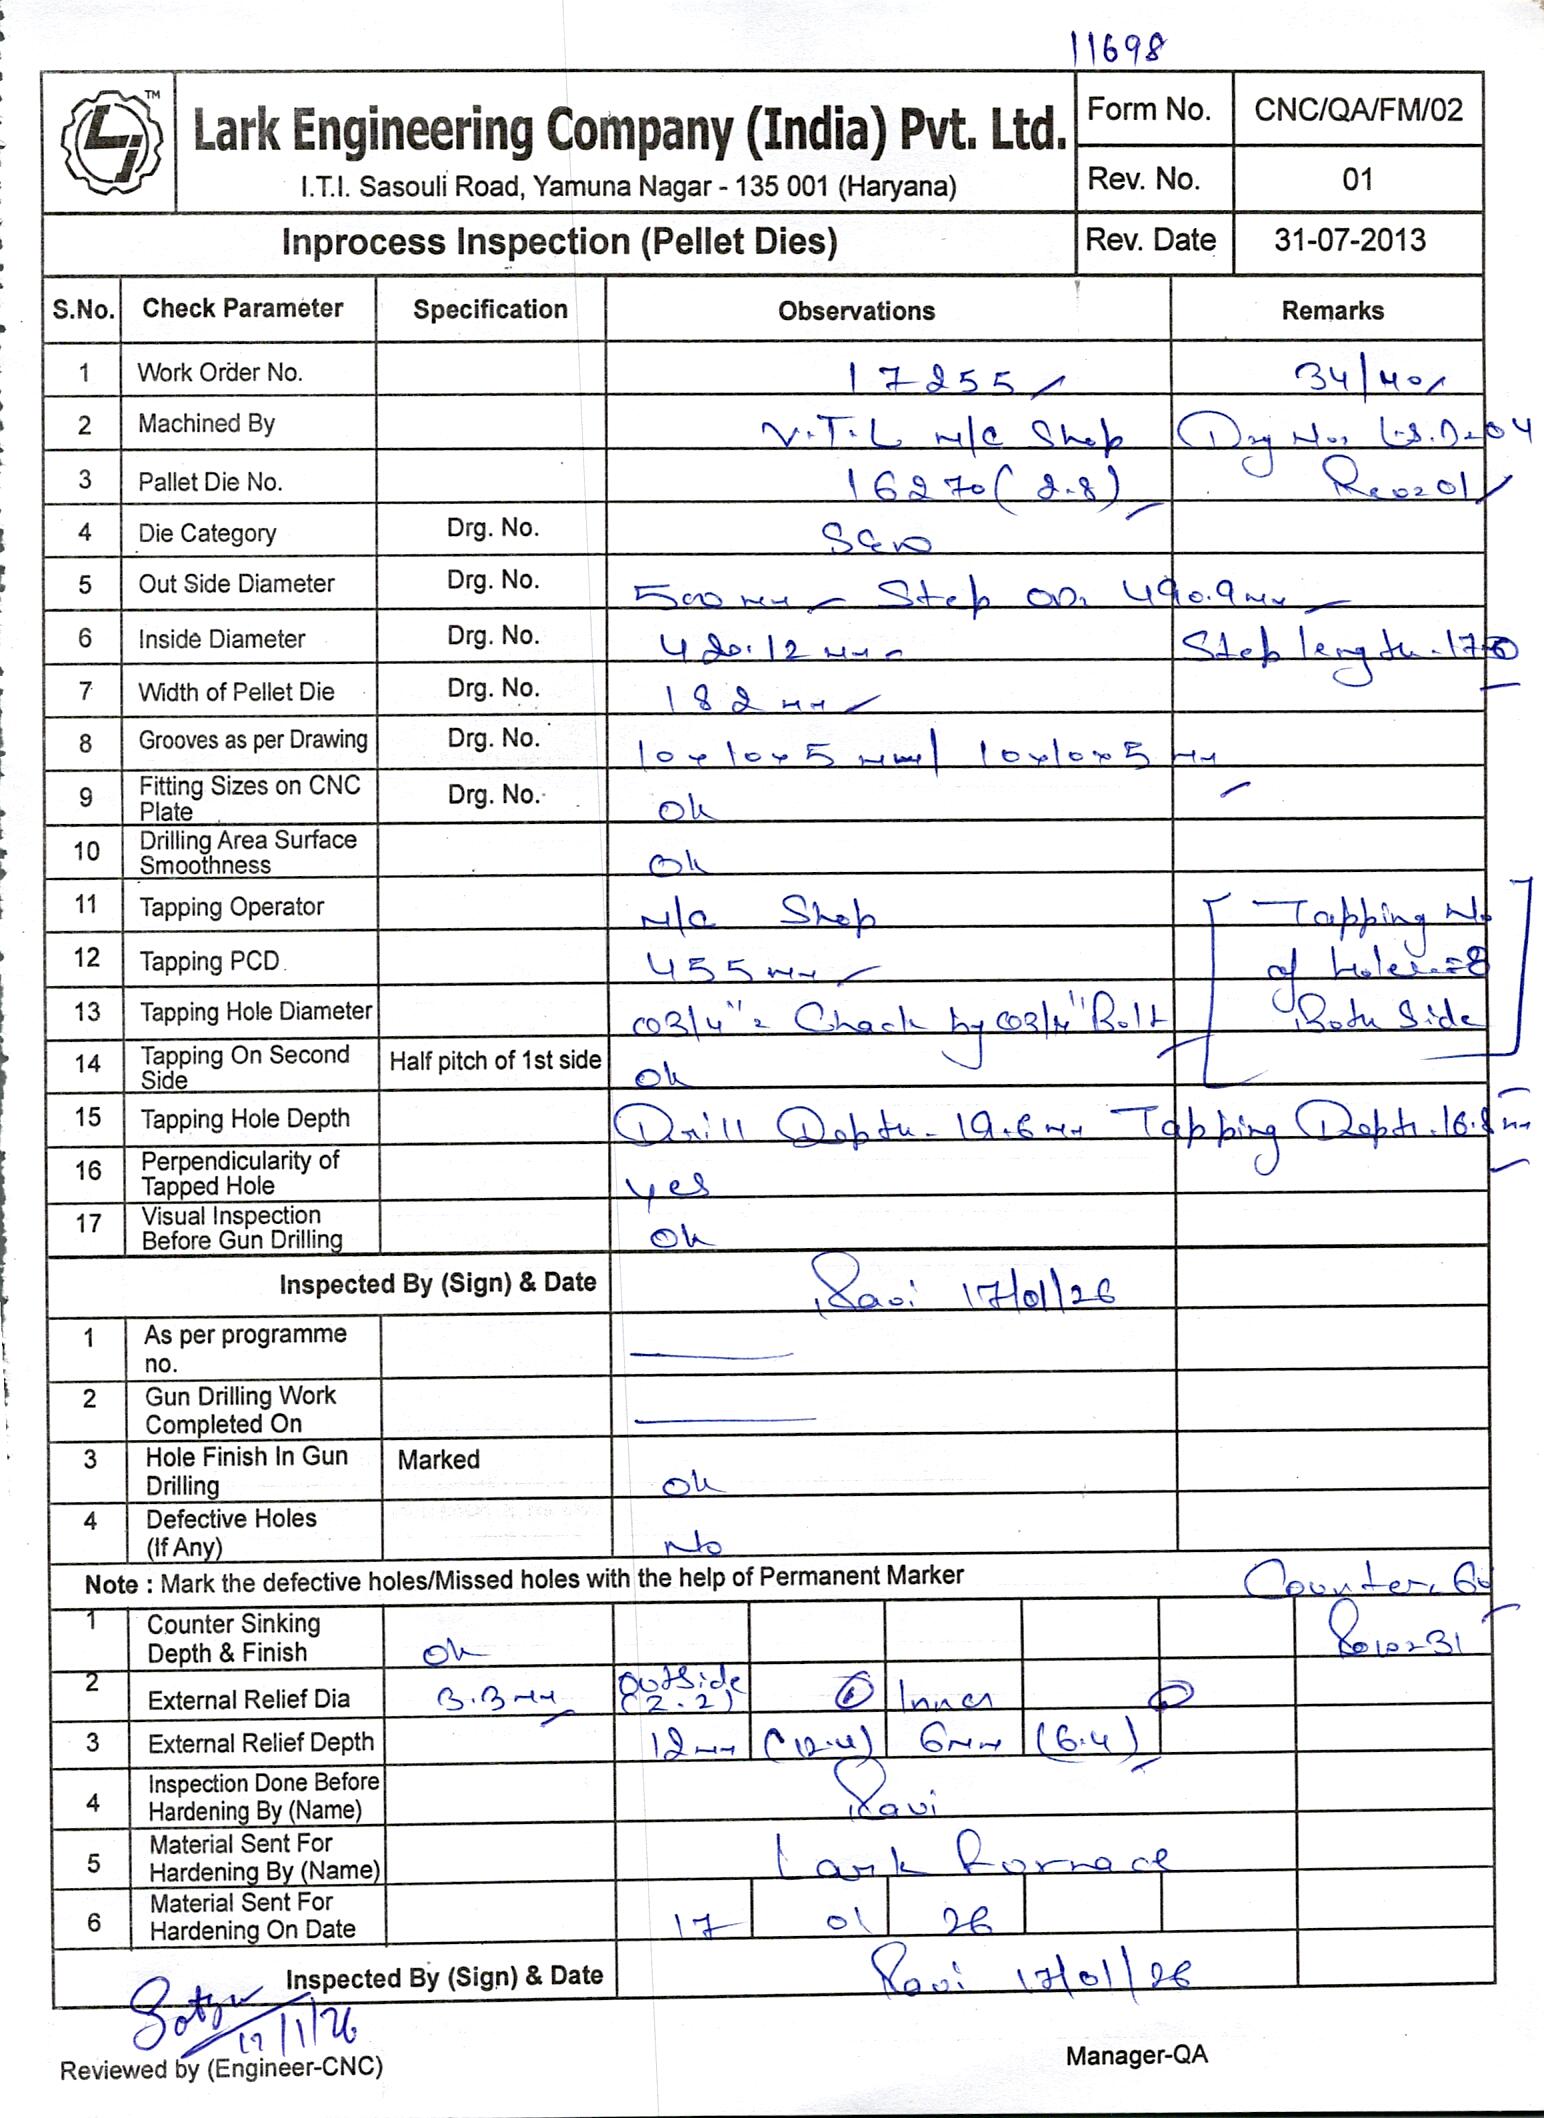 11698
LI TM
Lark Engineering Company (India) Pvt. Ltd.
I.T.I. Sasouli Road, Yamuna Nagar - 135 001 (Haryana)
Form No. CNC/QA/FM/02
Rev. No. 01
Inprocess Inspection (Pellet Dies) Rev. Date 31-07-2013
S.No. Check Parameter Specification Observations Remarks
1 Work Order No. 17255 34/40
2 Machined By V.T.L M/C Shop Drg No. L.S.D-04
3 Pallet Die No. 16270 (2.8) Rev=01
4 Die Category Drg. No.
5 Out Side Diameter Drg. No. 500mm Step OD. 490.9mm
6 Inside Diameter Drg. No. 420.12mm Step length.
7 Width of Pellet Die Drg. No. 182mm
8 Grooves as per Drawing Drg. No. 10x10x5 mm/ 10x10x5 mm
9 Fitting Sizes on CNC Plate Drg. No. Ok
10 Drilling Area Surface Smoothness Ok
11 Tapping Operator M/C Shop Tapping No
12 Tapping PCD 455mm of holes=8
13 Tapping Hole Diameter 3/4" Check by 3/4" Bolt Both Side
14 Tapping On Second Side Half pitch of 1st side Ok
15 Tapping Hole Depth Drill Depth. 19.6mm Tapping Depth. 16.8mm
16 Perpendicularity of Tapped Hole Yes
17 Visual Inspection Before Gun Drilling Ok
Inspected By (Sign) & Date Ravi 17/01/26
1 As per programme no.
2 Gun Drilling Work Completed On
3 Hole Finish In Gun Drilling Marked Ok
4 Defective Holes (If Any) No
Note : Mark the defective holes/Missed holes with the help of Permanent Marker Counter. 60
1 Counter Sinking Depth & Finish Ok Row=31
2 External Relief Dia 3.3mm Outside (2.2) Inner
3 External Relief Depth 12mm (12.4) 6mm (6.4)
4 Inspection Done Before Hardening By (Name) Ravi
5 Material Sent For Hardening By (Name) Lark Furnace
6 Material Sent For Hardening On Date 17 01 26
Inspected By (Sign) & Date Ravi 17/01/26
17/1/26
Reviewed by (Engineer-CNC) Manager-QA